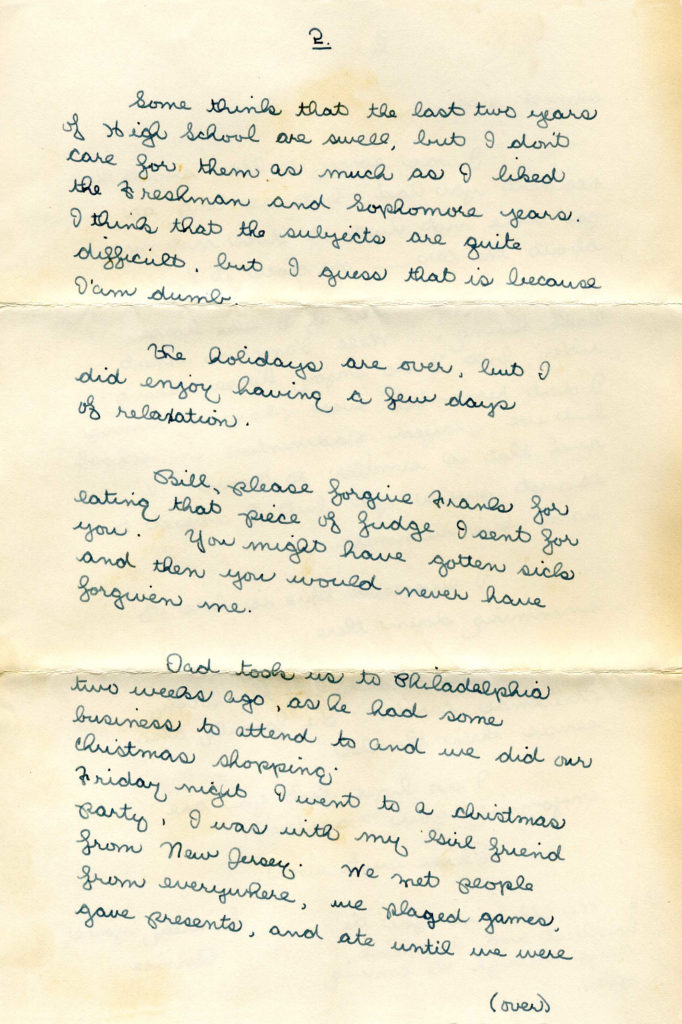 2.
Some think that the last two years
of High School are swell, but I don't
care for them as much as I liked
the Freshman and Sophomore years.
I think that the subjects are quite
difficult, but I guess that is because
I'am dumb.
The holidays are over, but I
did enjoy having a few days
of relaxation.
Bill, please forgive Frank for
eating that piece of fudge I sent for
you. You might have gotten sick
and then you would never have
forgiven me.
Dad took us to Philadelphia
two weeks ago, as he had some
business to attend to and we did our
christmas shopping.
Friday night I went to a christmas
party, I was with my Girl friend
from New Jersey. We met people
from everywhere, we played games,
gave presents, and ate until we were
(over)